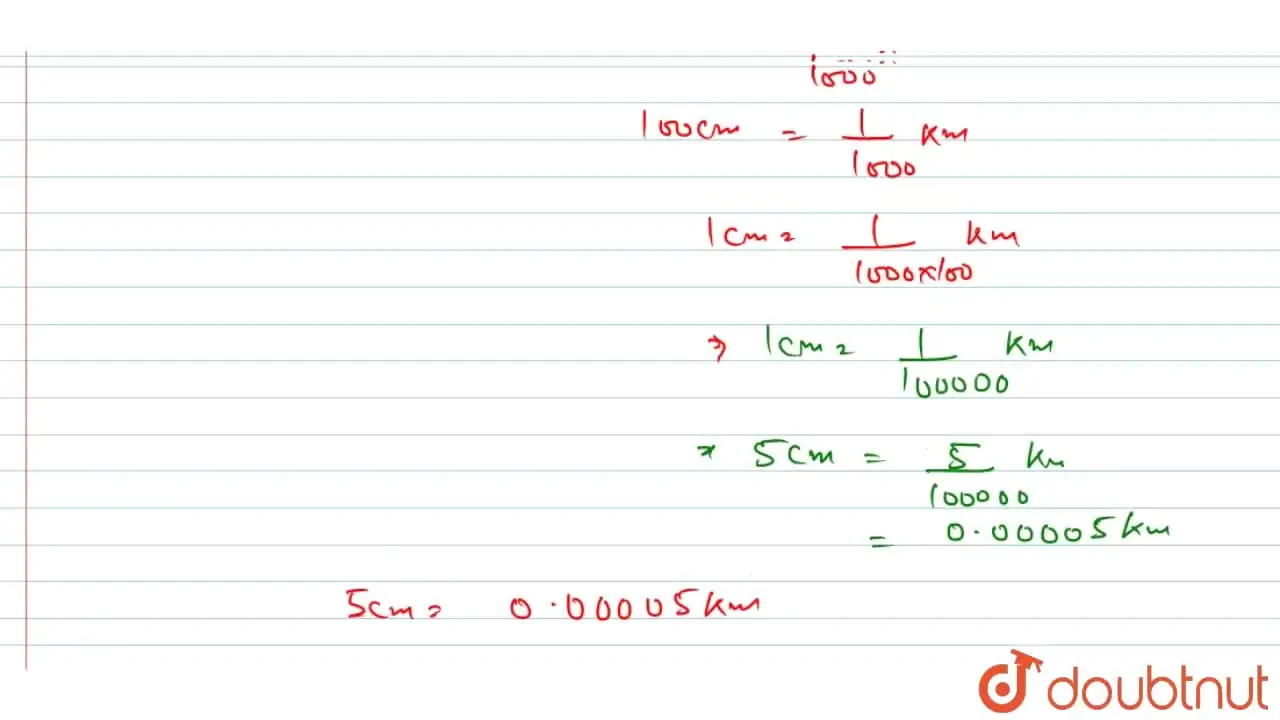 1000
100cm = 1/1000 km
1cm = 1/1000×100 km
⇒ 1cm = 1/100000 km
5cm = 5/100000 km
= 0.00005 km
5cm = 0.00005 km
doubtnut